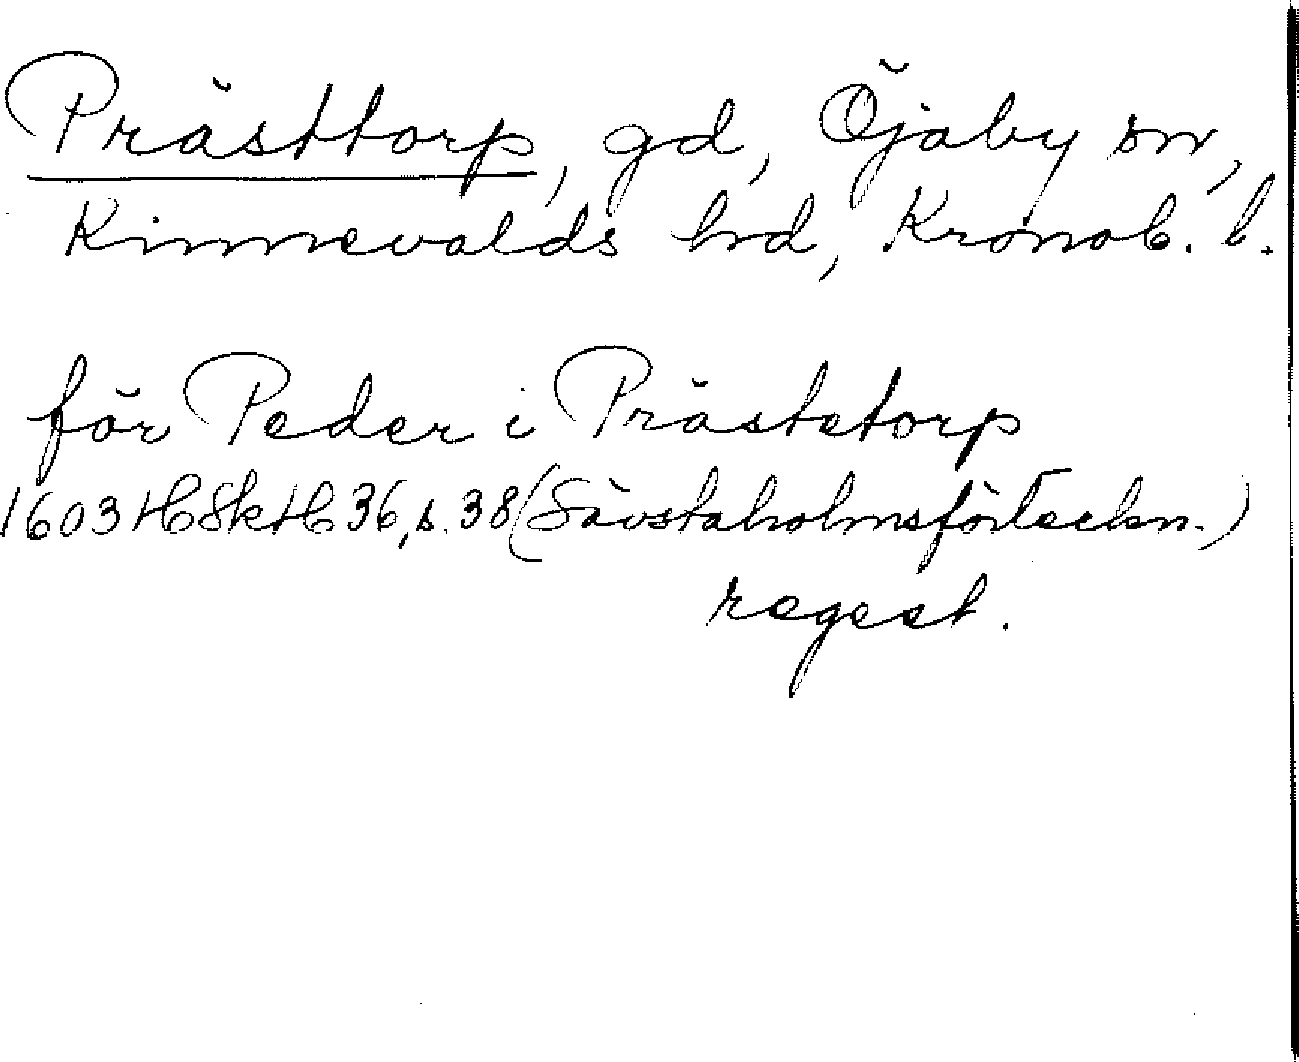 Prästtorp, gd, Öjaby sn,
Kinnevalds hrd, Kronob. l.
för Peder i Prästetorp
1603 HSkH 36, s. 38 (Sävstaholmsförteckn.)
regest.